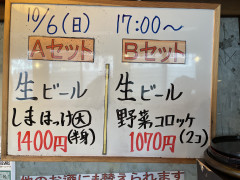 10/6(日) 17:00〜
Aセット
生ビール
しまほっけ(大)
1400円(半身)
Bセット
生ビール
野菜コロッケ
1070円(2コ)
のお酒にも替えられます